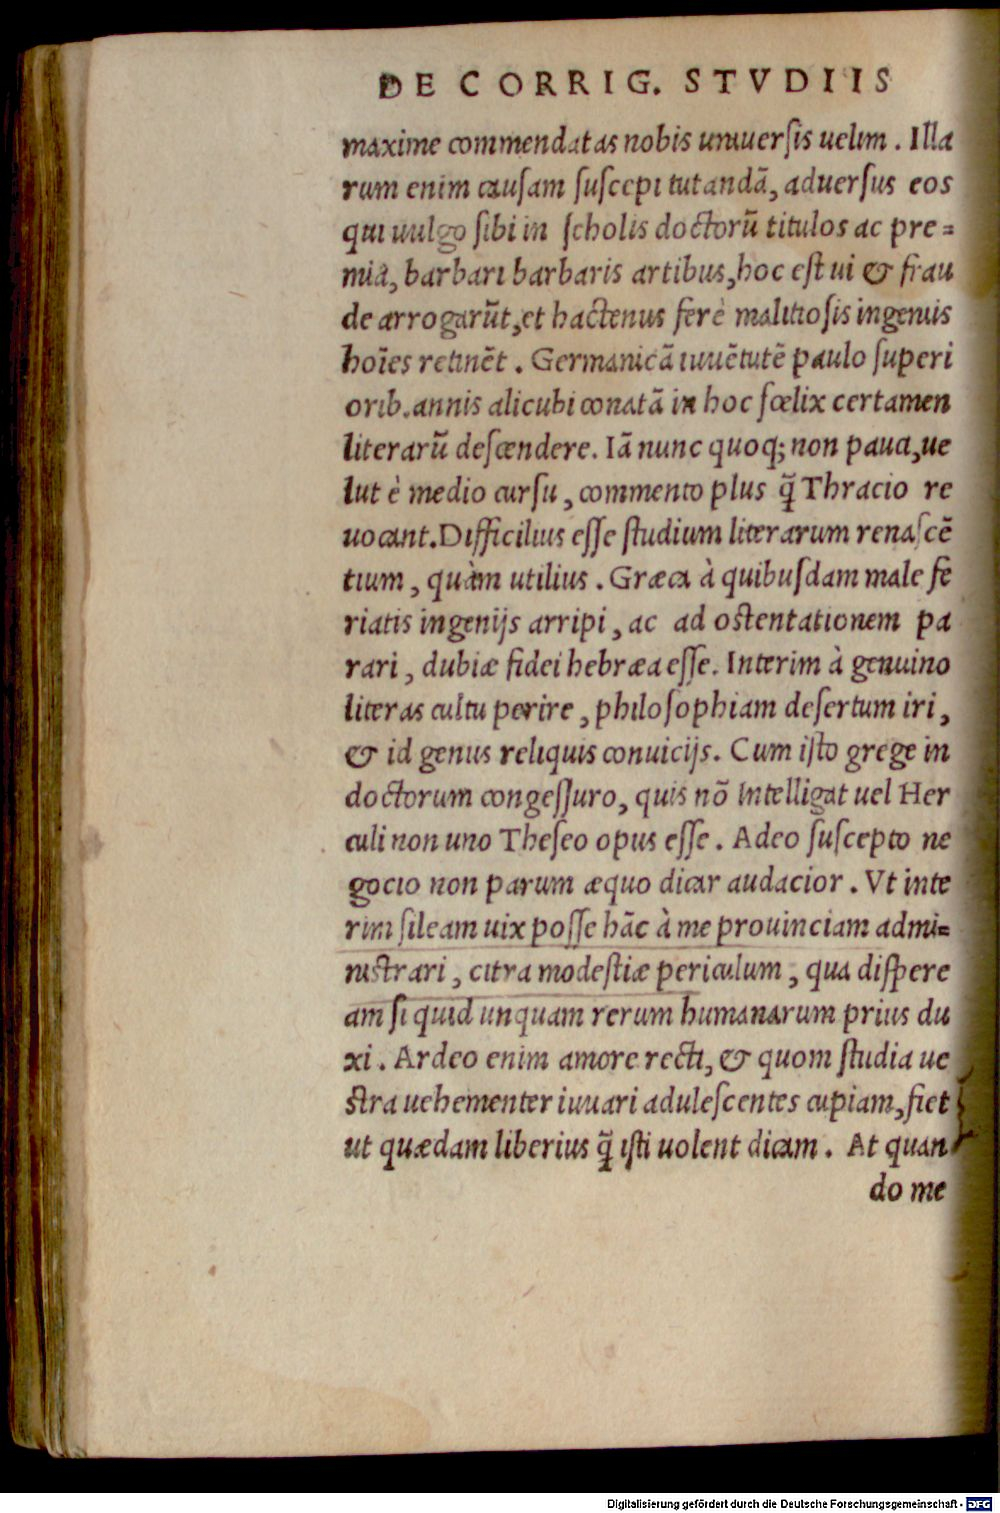 DE CORRIG. STVDIIS
maxime commendatas nobis uniuersis uelim. Illa
rum enim causam suscepi tutandā, aduersus eos
qui uulgo sibi in scholis doctorū titulos ac pre=
mia, barbari barbaris artibus, hoc est ui & frau
de arrogarūt, et hactenus ferè malitiosis ingenuis
hoīes retinēt. Germanicā iuuētutē paulo superi
orib. annis alicubi conatā in hoc fœlix certamen
literarū descendere. Iā nunc quoq; non pauci, ue
lut è medio cursu, commento plus q̃ Thracio re
uocant. Difficilius esse studium literarum renascē
tium, quàm utilius. Græca à quibusdam male fe
riatis ingenijs arripi, ac ad ostentationem pa
rari, dubiæ fidei hebræa esse. Interim à genuino
literas cultu perire, philosophiam desertum iri,
& id genus reliquis conuicijs. Cum isto grege in
doctorum congessuro, quis nō intelligat uel Her
culi non uno Theseo opus esse. Adeo suscepto ne
gocio non parum æquo dicar audacior. Vt inte
rim sileam uix posse hāc à me prouinciam admi=
nistrari, citra modestiæ periculum, qua dispere
am si quid unquam rerum humanarum prius du
xi. Ardeo enim amore recti, & quom studia ue
stra uehementer iuuari adulescentes cupiam, fiet
ut quædam liberius q̃ isti uolent dicam. At quan
do me
Digitalisierung gefördert durch die Deutsche Forschungsgemeinschaft - DFG